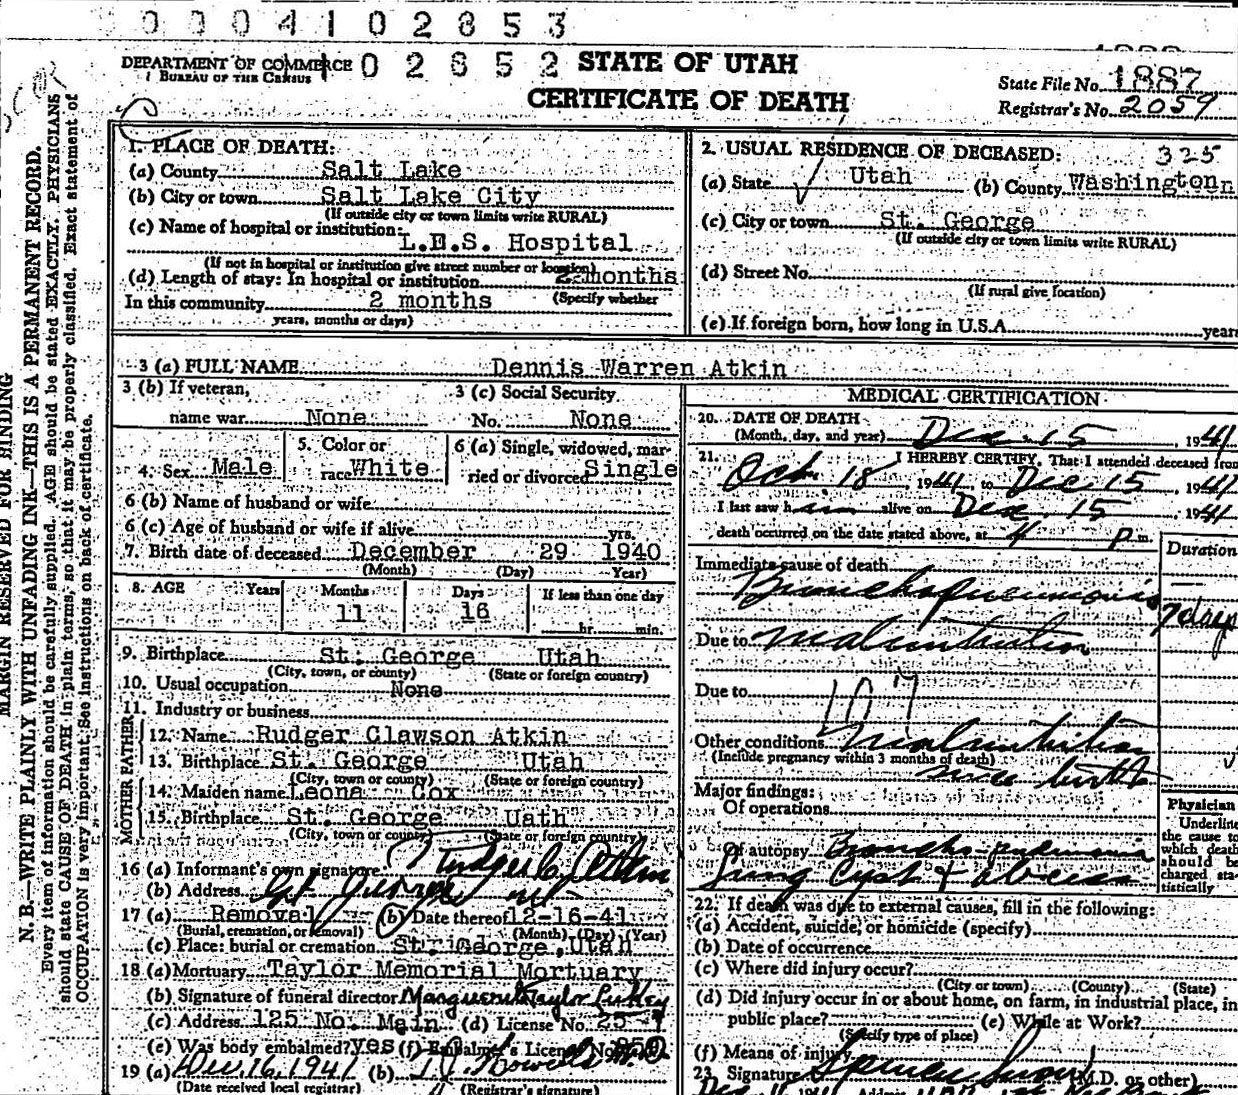 0 0 0 4 1 0 2 8 5 3
DEPARTMENT OF COMMERCE
BUREAU OF THE CENSUS
1 0 2 8 5 2
STATE OF UTAH
CERTIFICATE OF DEATH
State File No. 1887
Registrar's No. 2059
MARGIN RESERVED FOR BINDING
N. B.—WRITE PLAINLY WITH UNFADING INK—THIS IS A PERMANENT RECORD.
Every item of information should be carefully supplied. AGE should be stated EXACTLY. PHYSICIANS
should state CAUSE OF DEATH in plain terms, so that it may be properly classified. Exact statement of
OCCUPATION is very important. See instructions on back of certificate.
1. PLACE OF DEATH:
(a) County Salt Lake
(b) City or town Salt Lake City
(If outside city or town limits write RURAL)
(c) Name of hospital or institution:
L.D.S. Hospital
(If not in hospital or institution give street number or location)
(d) Length of stay: In hospital or institution 2 months
(Specify whether
In this community 2 months
years, months or days)
2. USUAL RESIDENCE OF DECEASED: 325
(a) State Utah (b) County Washington
(c) City or town St. George
(If outside city or town limits write RURAL)
(d) Street No.
(If rural give location)
(e) If foreign born, how long in U.S.A. year
3 (a) FULL NAME Dennis Warren Atkin
3 (b) If veteran,
name war None
3 (c) Social Security
No. None
4. Sex Male
5. Color or
race White
6 (a) Single, widowed, mar-
ried or divorced Single
6 (b) Name of husband or wife
6 (c) Age of husband or wife if alive yrs.
7. Birth date of deceased December 29 1940
(Month) (Day) Year)
8. AGE Years Months Days If less than one day
11 16
hr. min.
9. Birthplace St. George Utah
(City, town, or county) (State or foreign country)
10. Usual occupation None
11. Industry or business
FATHER
12. Name Rudger Clawson Atkin
13. Birthplace St. George Utah
(City, town or county) (State or foreign country)
MOTHER
14. Maiden name Leona Cox
15. Birthplace St. George Uath
(City, town or county) (State or foreign country)
16 (a) Informant's own signature Rudger C. Atkin
(b) Address St George Ut
17 (a) Removal (b) Date thereof 12-16-41
(Burial, cremation, or removal) (Month) (Day) (Year)
(c) Place: burial or cremation St. George, Utah
18 (a) Mortuary Taylor Memorial Mortuary
(b) Signature of funeral director Marguerite Taylor
(c) Address 125 No. Main (d) License No.
(e) Was body embalmed? yes (f) Embalmer's License No.
19 (a) Dec. 16, 1941 (b)
(Date received local registrar) (Registrar's signature)
MEDICAL CERTIFICATION
20. DATE OF DEATH
(Month, day, and year) Dec. 15, 1941
21. I HEREBY CERTIFY, That I attended deceased from
Oct 18, 1941, to Dec 15, 1941
I last saw him alive on Dec. 15, 1941
death occurred on the date stated above, at 4 p m.
Duration
Immediate cause of death
Bronchopneumonia 7 days
Due to malnutrition
Due to
107
Other conditions Malnutrition
(Include pregnancy within 3 months of death)
since birth
Major findings:
Of operations
Of autopsy Broncho-pneumonia
Lung Cyst & abscess
Physician
Underline
the cause to
which death
should be
charged sta-
tistically
22. If death was due to external causes, fill in the following:
(a) Accident, suicide, or homicide (specify)
(b) Date of occurrence
(c) Where did injury occur?
(City or town) (County) (State)
(d) Did injury occur in or about home, on farm, in industrial place, in
public place? (e) While at Work?
(Specify type of place)
(f) Means of injury
23. Signature Spencer Snow (M.D. or other)